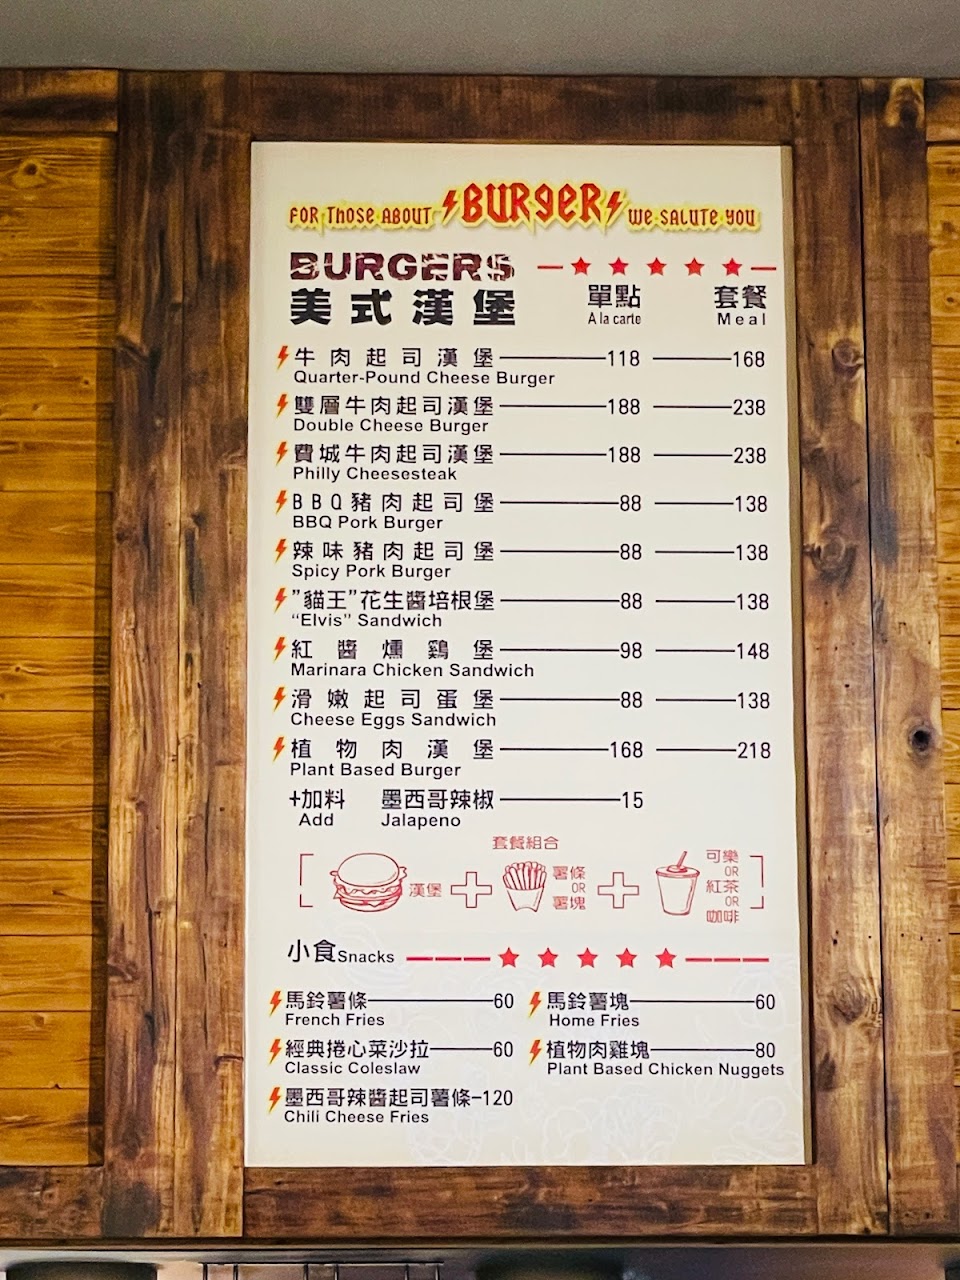 FOR THOSE ABOUT BURGER WE SALUTE YOU
BURGERS
美式漢堡 單點 套餐
A la carte Meal
牛肉起司漢堡 118 168
Quarter-Pound Cheese Burger
雙層牛肉起司漢堡 188 238
Double Cheese Burger
費城牛肉起司漢堡 188 238
Philly Cheesesteak
BBQ豬肉起司堡 88 138
BBQ Pork Burger
辣味豬肉起司堡 88 138
Spicy Pork Burger
”貓王”花生醬培根堡 88 138
“Elvis” Sandwich
紅醬燻鷄堡 98 148
Marinara Chicken Sandwich
滑嫩起司蛋堡 88 138
Cheese Eggs Sandwich
植物肉漢堡 168 218
Plant Based Burger
+加料 墨西哥辣椒 15
Add Jalapeno
套餐組合
漢堡 + 薯條 OR 薯塊 + 可樂 OR 紅茶 OR 咖啡
小食Snacks
馬鈴薯條 60 馬鈴薯塊 60
French Fries Home Fries
經典捲心菜沙拉 60 植物肉雞塊 80
Classic Coleslaw Plant Based Chicken Nuggets
墨西哥辣醬起司薯條-120
Chili Cheese Fries